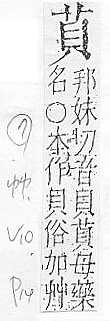 邦妹切音貝母藥
名○本作貝俗加艸
⑦
艸
V10
P14